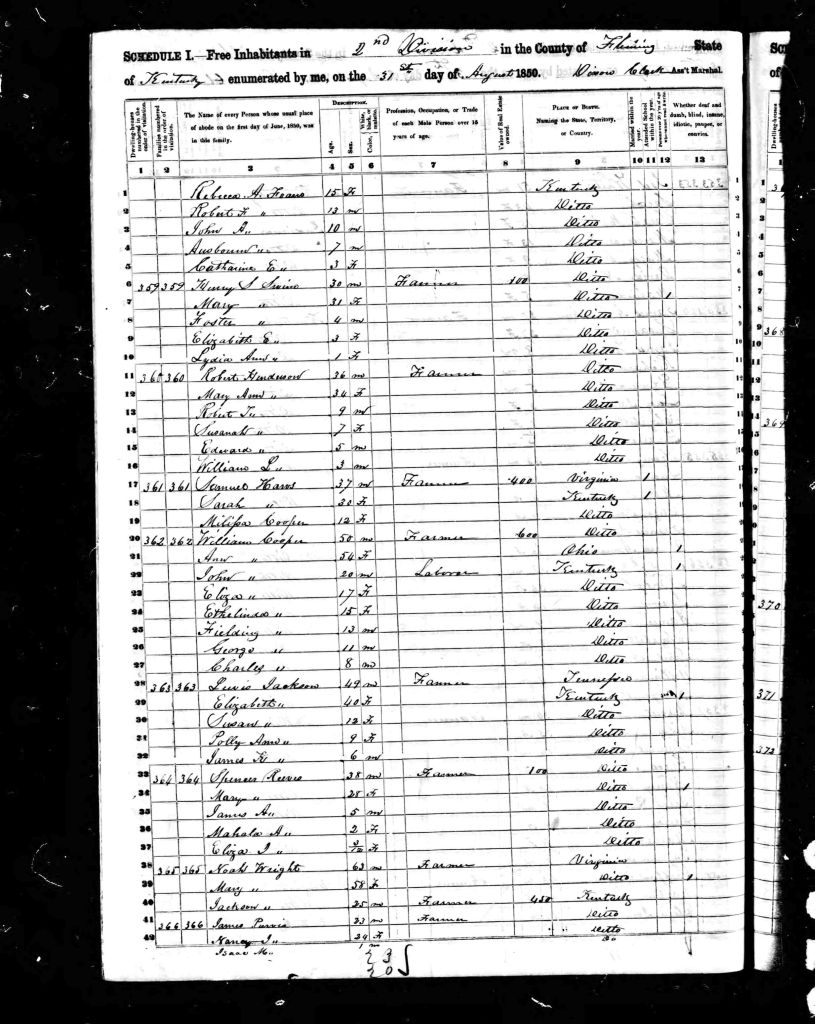 SCHEDULE I.—Free Inhabitants in 2nd Division in the County of Fleming State
of Kentucky enumerated by me, on the 31st day of August 1850. Clark Ass't Marshal.
Dwelling-houses numbered in the order of visitation.
Families numbered in the order of visitation.
The Name of every Person whose usual place of abode on the first day of June, 1850, was in this family.
DESCRIPTION.
Age.
Sex.
Color, White, black, or mulatto.
Profession, Occupation, or Trade of each Male Person over 15 years of age.
Value of Real Estate owned.
PLACE OF BIRTH. Naming the State, Territory, or Country.
Married within the year.
Attended School within the year.
Whether deaf and dumb, blind, insane, idiotic, pauper, or convict.
1 2 3 4 5 6 7 8 9 10 11 12 13
1 Rebecca A. 15 F Kentucky 1
2 Robert F " 13 m Ditto 2
3 John A " 10 m Ditto 3
4 " 7 m Ditto 4
5 Catharine E " 3 F Ditto 5
6 359 359 Henry S 30 m Farmer 100 Ditto 6
7 Mary " 31 F Ditto 1 7
8 Foster " 4 m Ditto 8
9 Elizabeth E " 3 F Ditto 9
10 Lydia Ann " 1 F Ditto 10
11 360 360 Robert Henderson 36 m Farmer Ditto 11
12 Mary Ann " 34 F Ditto 12
13 Robert " 9 m Ditto 13
14 Susanah " 7 F Ditto 14
15 Edward " 5 m Ditto 15
16 William L " 3 m Ditto 16
17 361 361 Samuel 37 m Farmer 400 Virginia 1 17
18 Sarah " 20 F Kentucky 1 18
19 Milissa Cooper 12 F Ditto 19
20 362 362 William Cooper 50 m Farmer 600 Ditto 20
21 Ann " 54 F Ohio 1 21
22 John " 20 m Laborer Kentucky 1 22
23 Eliza " 17 F Ditto 23
24 Ethelinda " 15 F Ditto 24
25 Fielding " 13 m Ditto 25
26 George " 11 m Ditto 26
27 Charles " 8 m Ditto 27
28 363 363 Lewis Jackson 49 m Farmer Tennessee 28
29 Elizabeth " 40 F Kentucky 1 29
30 Susan " 12 F Ditto 30
31 Polly Ann " 9 F Ditto 31
32 James H " 6 m Ditto 32
33 364 364 Spencer Reeves 28 m Farmer 100 Ditto 33
34 Mary " 28 F Ditto 1 34
35 James A " 5 m Ditto 35
36 Mahala A " 2 F Ditto 36
37 Eliza J " F Ditto 37
38 365 365 Noah Wright 63 m Farmer Virginia 38
39 Mary " 58 F Ditto 1 39
40 Jackson " 25 m Farmer 450 Kentucky 40
41 366 366 James Purvis 23 m Farmer Ditto 41
42 Nancy J " 24 F Ditto 42
Isaac M " 1 m Do
23
20
368
369
370
371
372